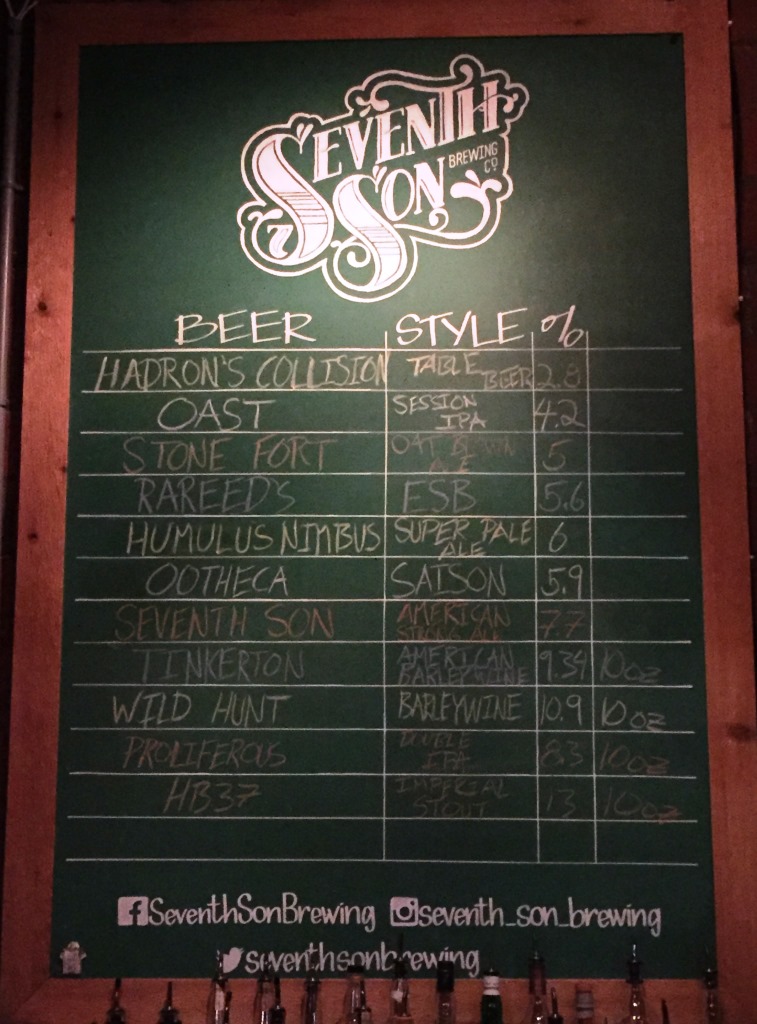 SEVENTH
SON
BREWING
CO
7
BEER STYLE %
HADRON'S COLLISION TABLE BEER 2.8
OAST SESSION IPA 4.2
STONE FORT OAT BROWN ALE 5
RAREED'S ESB 5.6
HUMULUS NIMBUS SUPER PALE ALE 6
OOTHECA SAISON 5.9
SEVENTH SON AMERICAN STRONG ALE 7.7
TINKERTON AMERICAN BARLEYWINE 9.34 10oz
WILD HUNT BARLEYWINE 10.9 10oz
PROLIFEROUS DOUBLE IPA 8.3 10oz
HB37 IMPERIAL STOUT 13 10oz
SeventhSonBrewing seventh_son_brewing
seventhsonbrewing